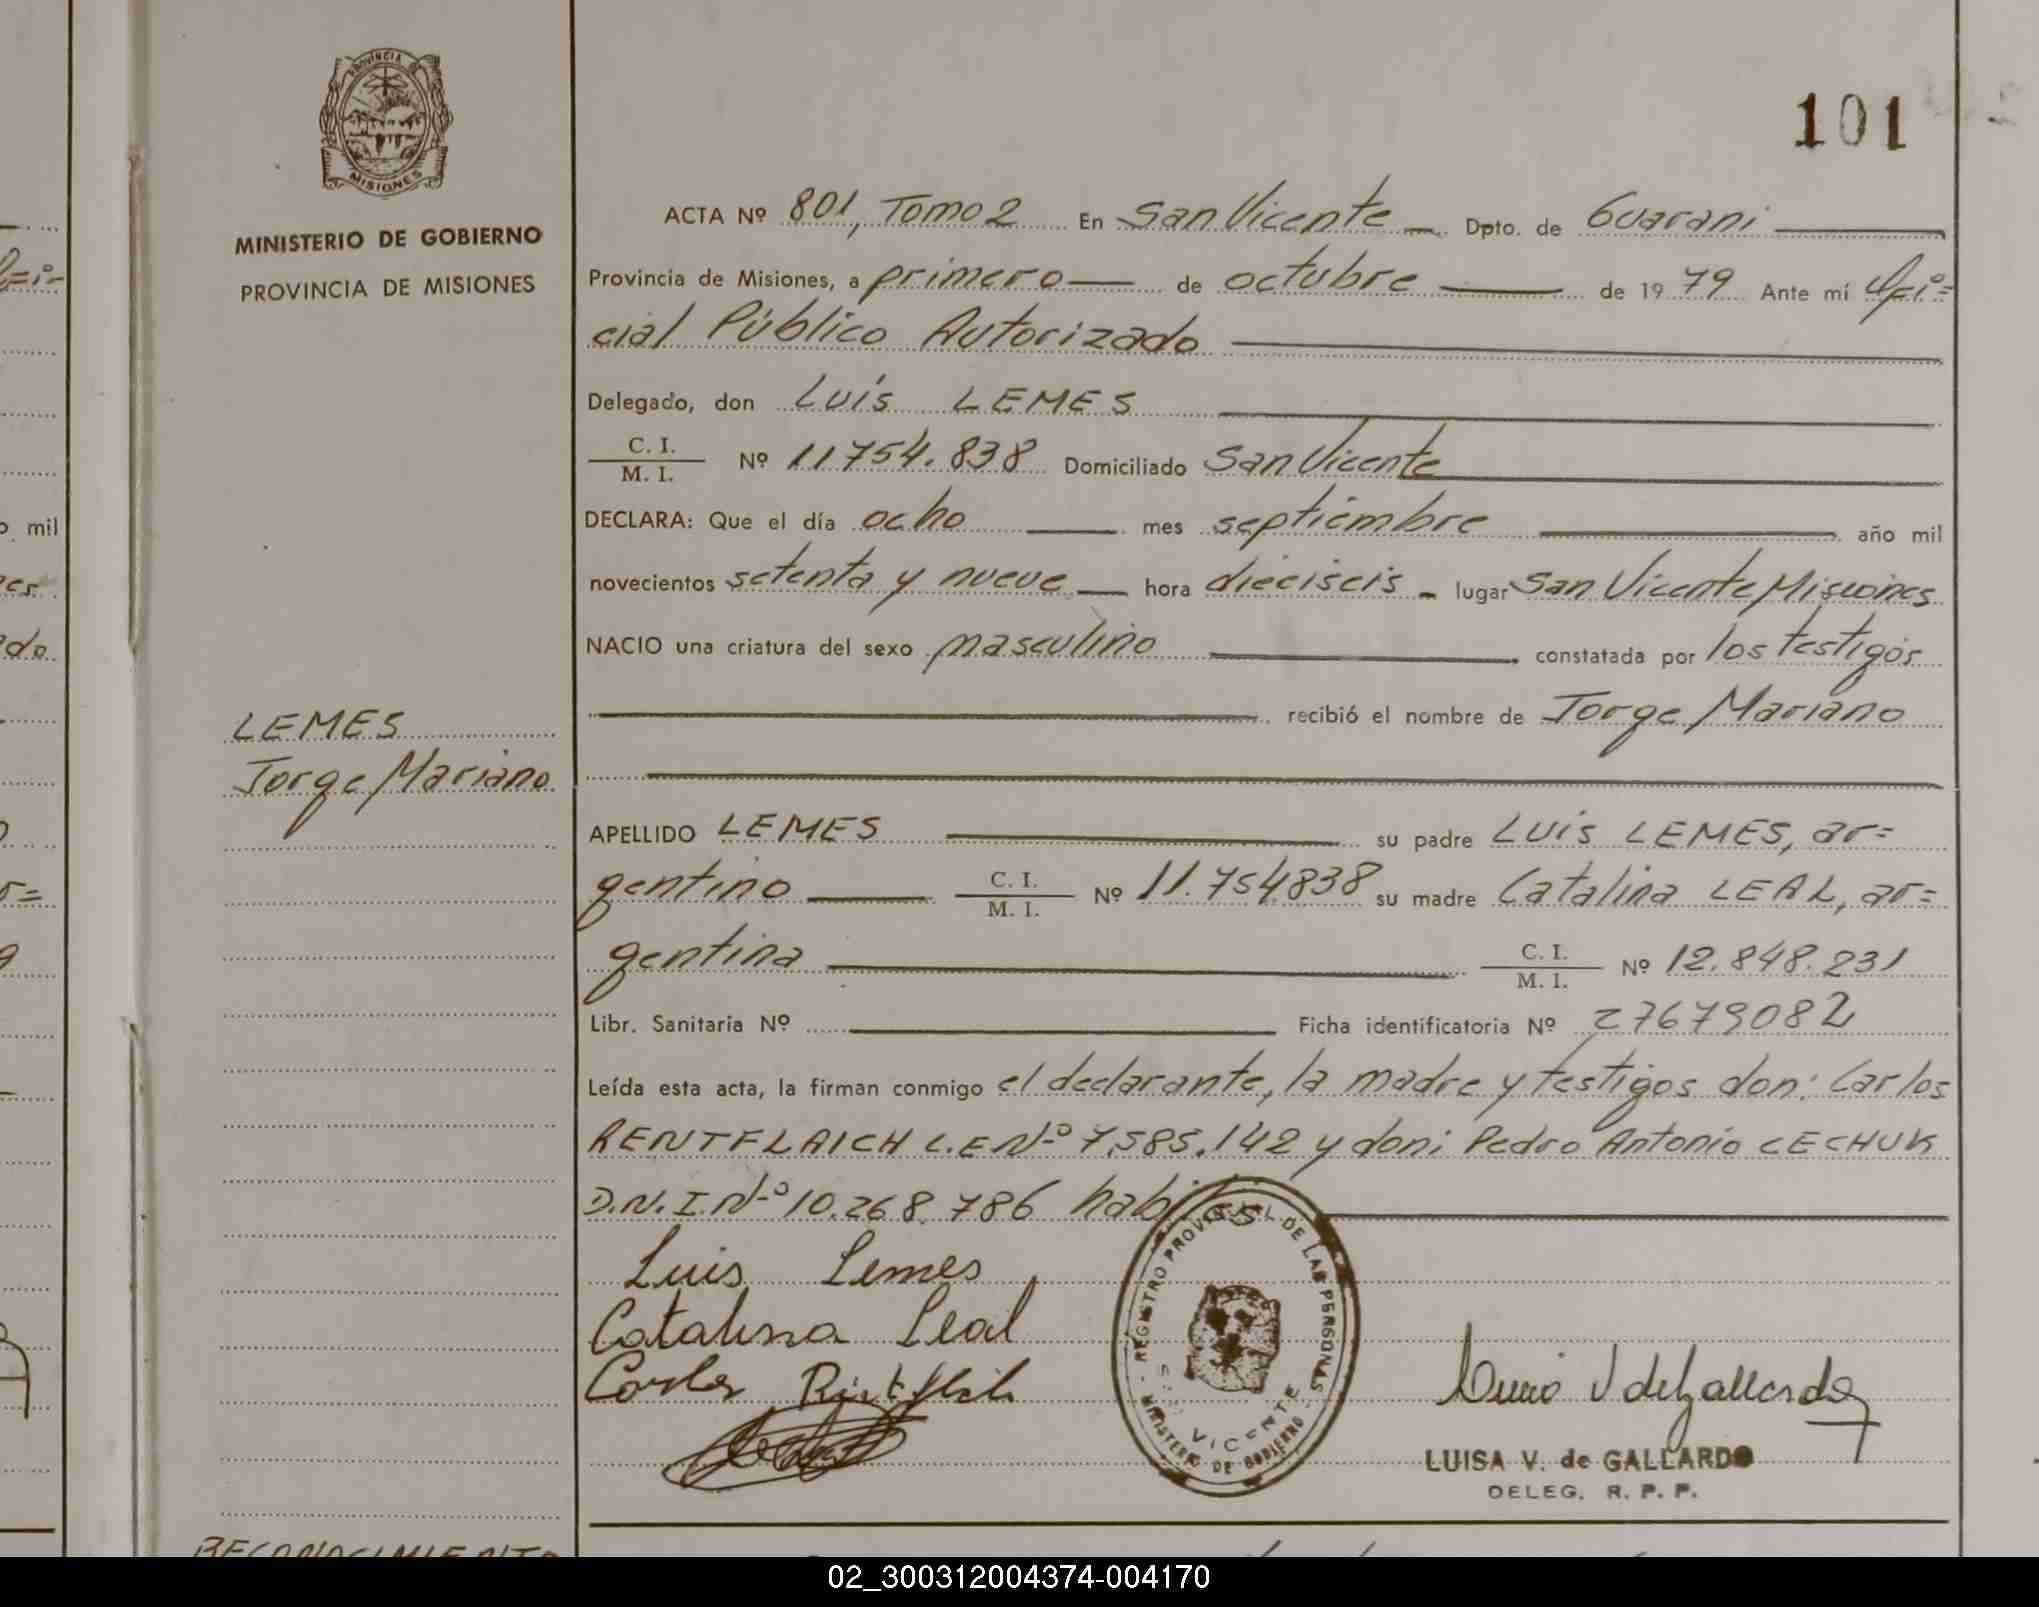 PROVINCIA DE
MISIONES
MINISTERIO DE GOBIERNO
PROVINCIA DE MISIONES
101
ACTA Nº 801, Tomo 2 En San Vicente Dpto. de Guarani
Provincia de Misiones, a primero de octubre de 19 79 Ante mí Ofi=
cial Público Autorizado
Delegado, don Luis LEMES
C. I.
M. I. Nº 11754.838 Domiciliado San Vicente
DECLARA: Que el día ocho mes septiembre año mil
novecientos setenta y nueve hora dieciseis lugar San Vicente Misiones
NACIO una criatura del sexo masculino constatada por los testigos
recibió el nombre de Jorge Mariano
LEMES
Jorge Mariano
APELLIDO LEMES su padre Luis LEMES, ar=
gentino C. I. M. I. Nº 11.754838 su madre Catalina LEAL, ar=
gentina C. I. M. I. Nº 12.848.231
Libr. Sanitaria Nº Ficha identificatoria Nº 27679082
Leída esta acta, la firman conmigo el declarante, la madre y testigos don: Carlos
RENTFLAICH L.E Nº 7.585.142 y don: Pedro Antonio CECHUK
D.N.I. Nº 10.268.786
Luis Lemes
Catalina Leal
REGISTRO PROVINCIAL DE LAS PERSONAS
MINISTERIO DE GOBIERNO
VICENTE
LUISA V. de GALLARDO
DELEG. R. P. P.
RECONOCIMIENTO
mil
02_300312004374-004170